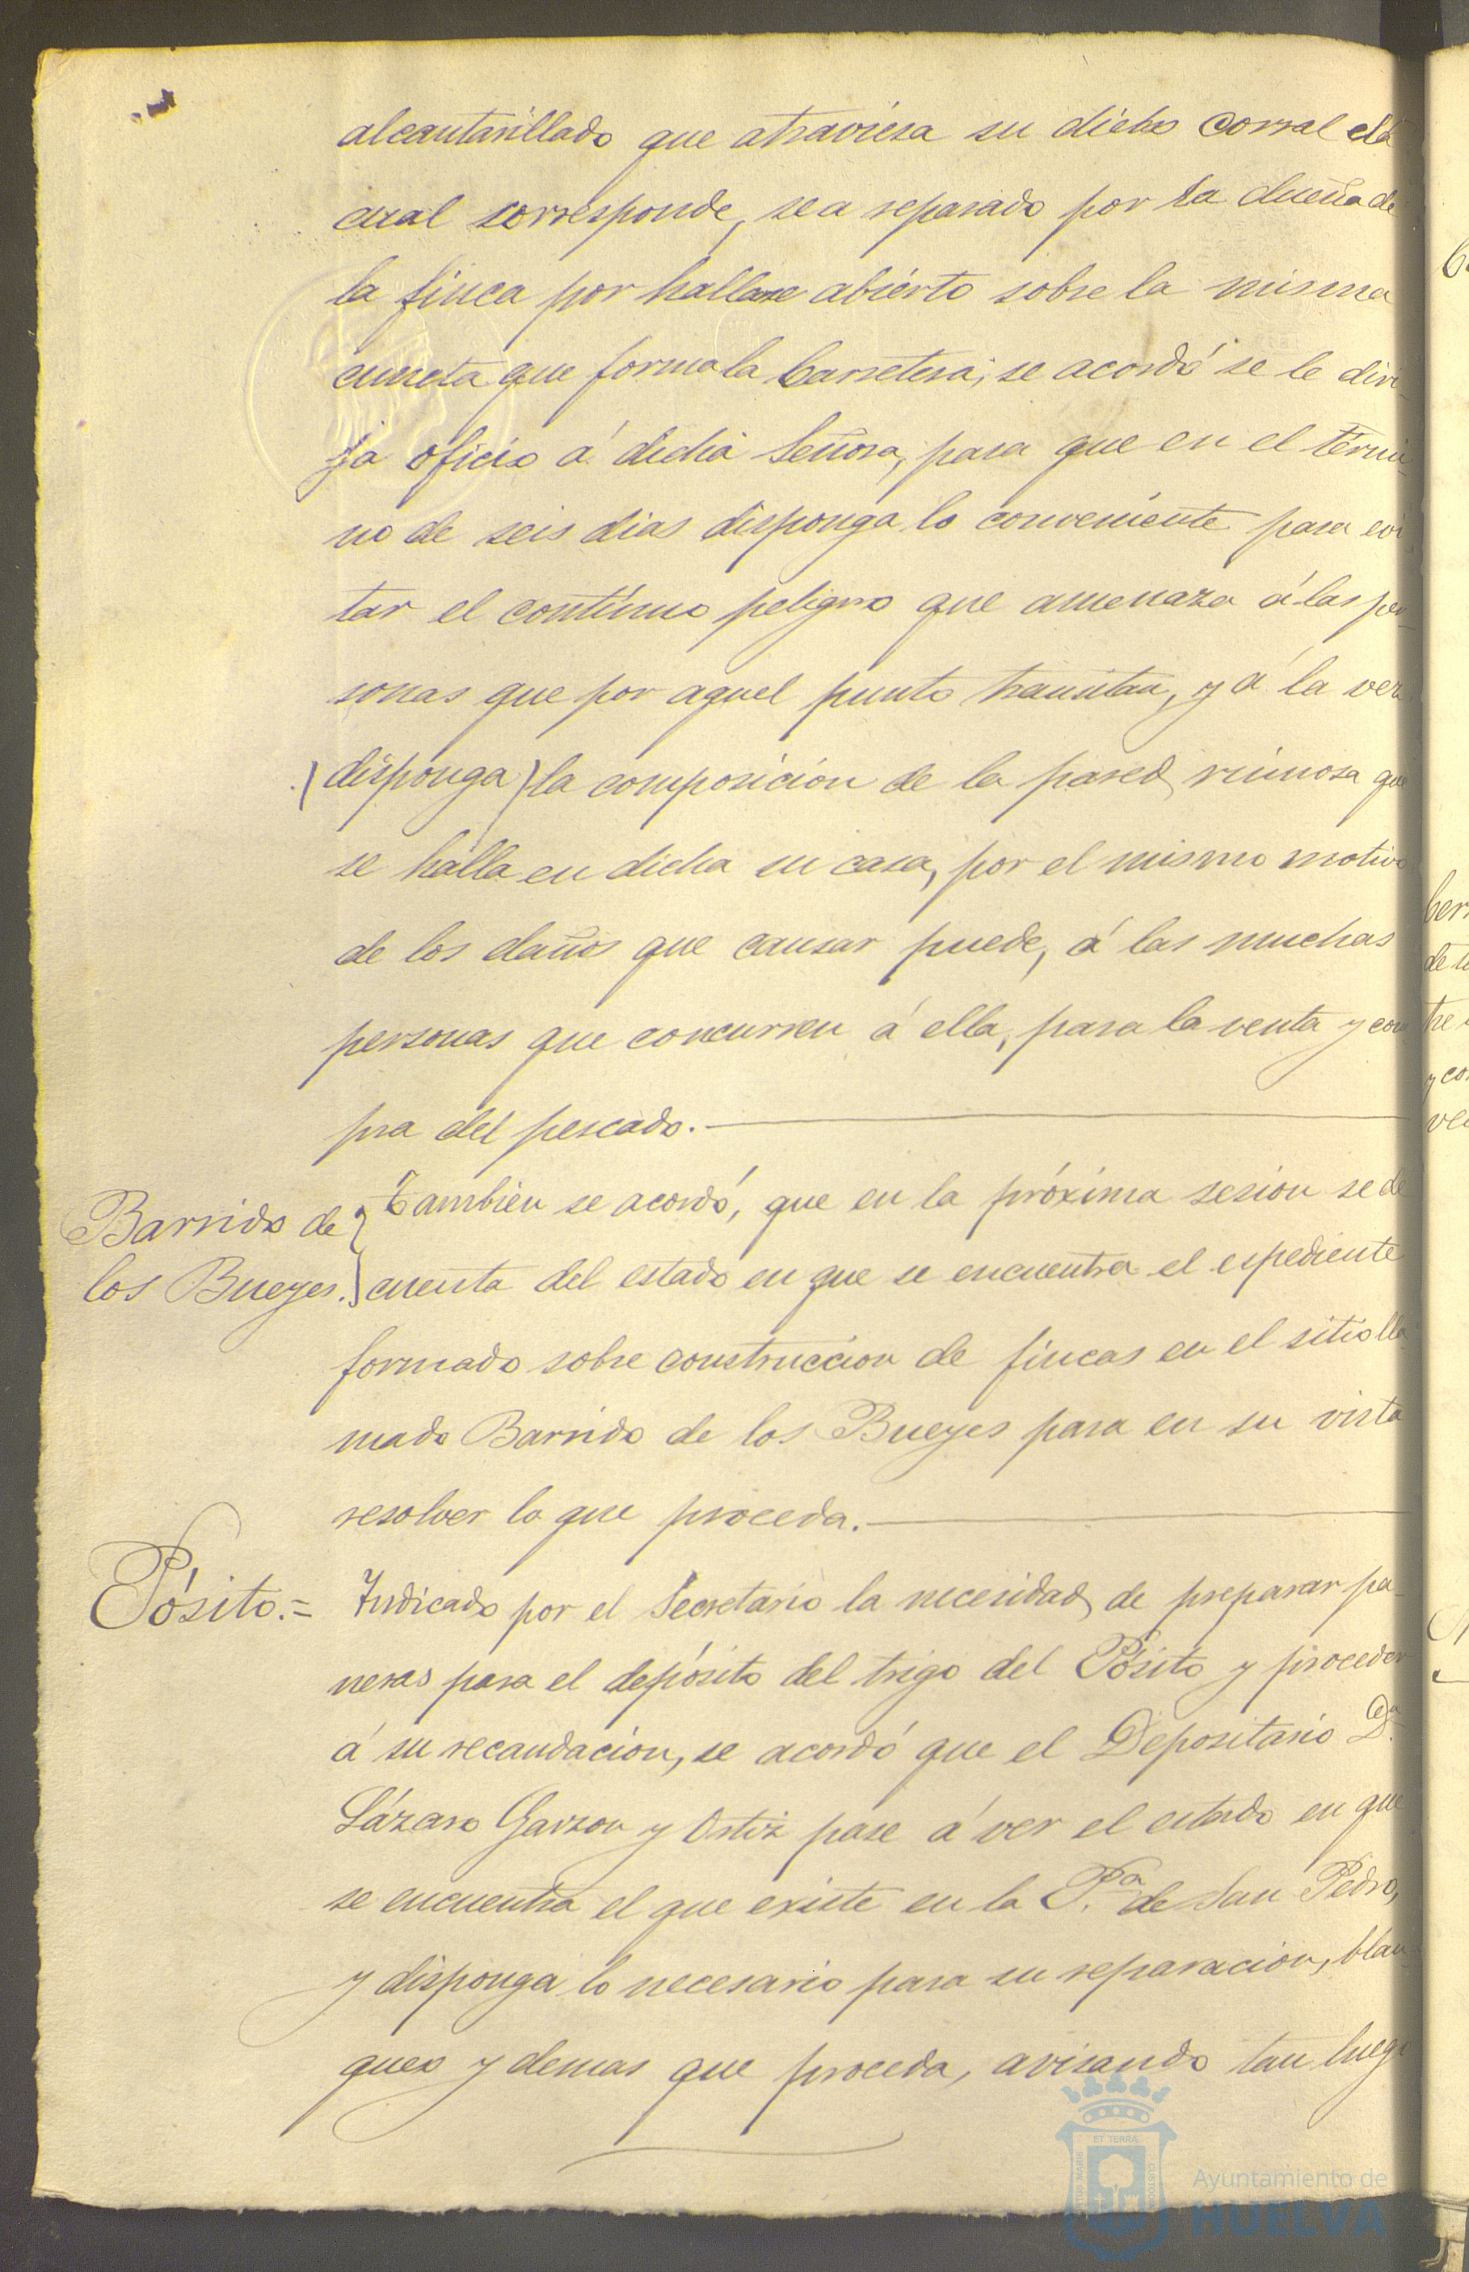 alcantarillado que atraviesa su dicho corral el
cual corresponde, sea reparado por la dueña de
la finca por hallarse abierto sobre la misma
cuneta que forma la Carretera; se acordó se le diri-
ja oficio á dicha Señora, para que en el térmi-
no de seis dias disponga lo conveniente para evi-
tar el contínuo peligro que amenaza á las per-
sonas que por aquel punto transitan, y á la vez
(disponga) la composicion de la pared ruinosa que
se halla en dicha su casa, por el mismo motivo
de los daños que causar puede, á las muchas
personas que concurren á ella, para la venta y com
pra del pescado.
Barrido de
los Bueyes.
Tambien se acordó, que en la próxima sesion se dé
cuenta del estado en que se encuentra el espediente
formado sobre construccion de fincas en el sitio lla
mado Barrido de los Bueyes para en su vista
resolver lo que proceda.
Pósito.=
Indicado por el Secretario la necesidad de preparar pa-
neras para el depósito del trigo del Pósito y proceder
á su recaudacion, se acordó que el Depositario Dn
Lázaro Garzon y Ortiz pase á ver el estado en que
se encuentra el que existe en la P.a de San Pedro,
y disponga lo necesario para su reparacion, blan
queo y demas que proceda, avisando tan luego
ET TERRA
CUSTODIA
PORTUS MARIS
Ayuntamiento de
HUELVA